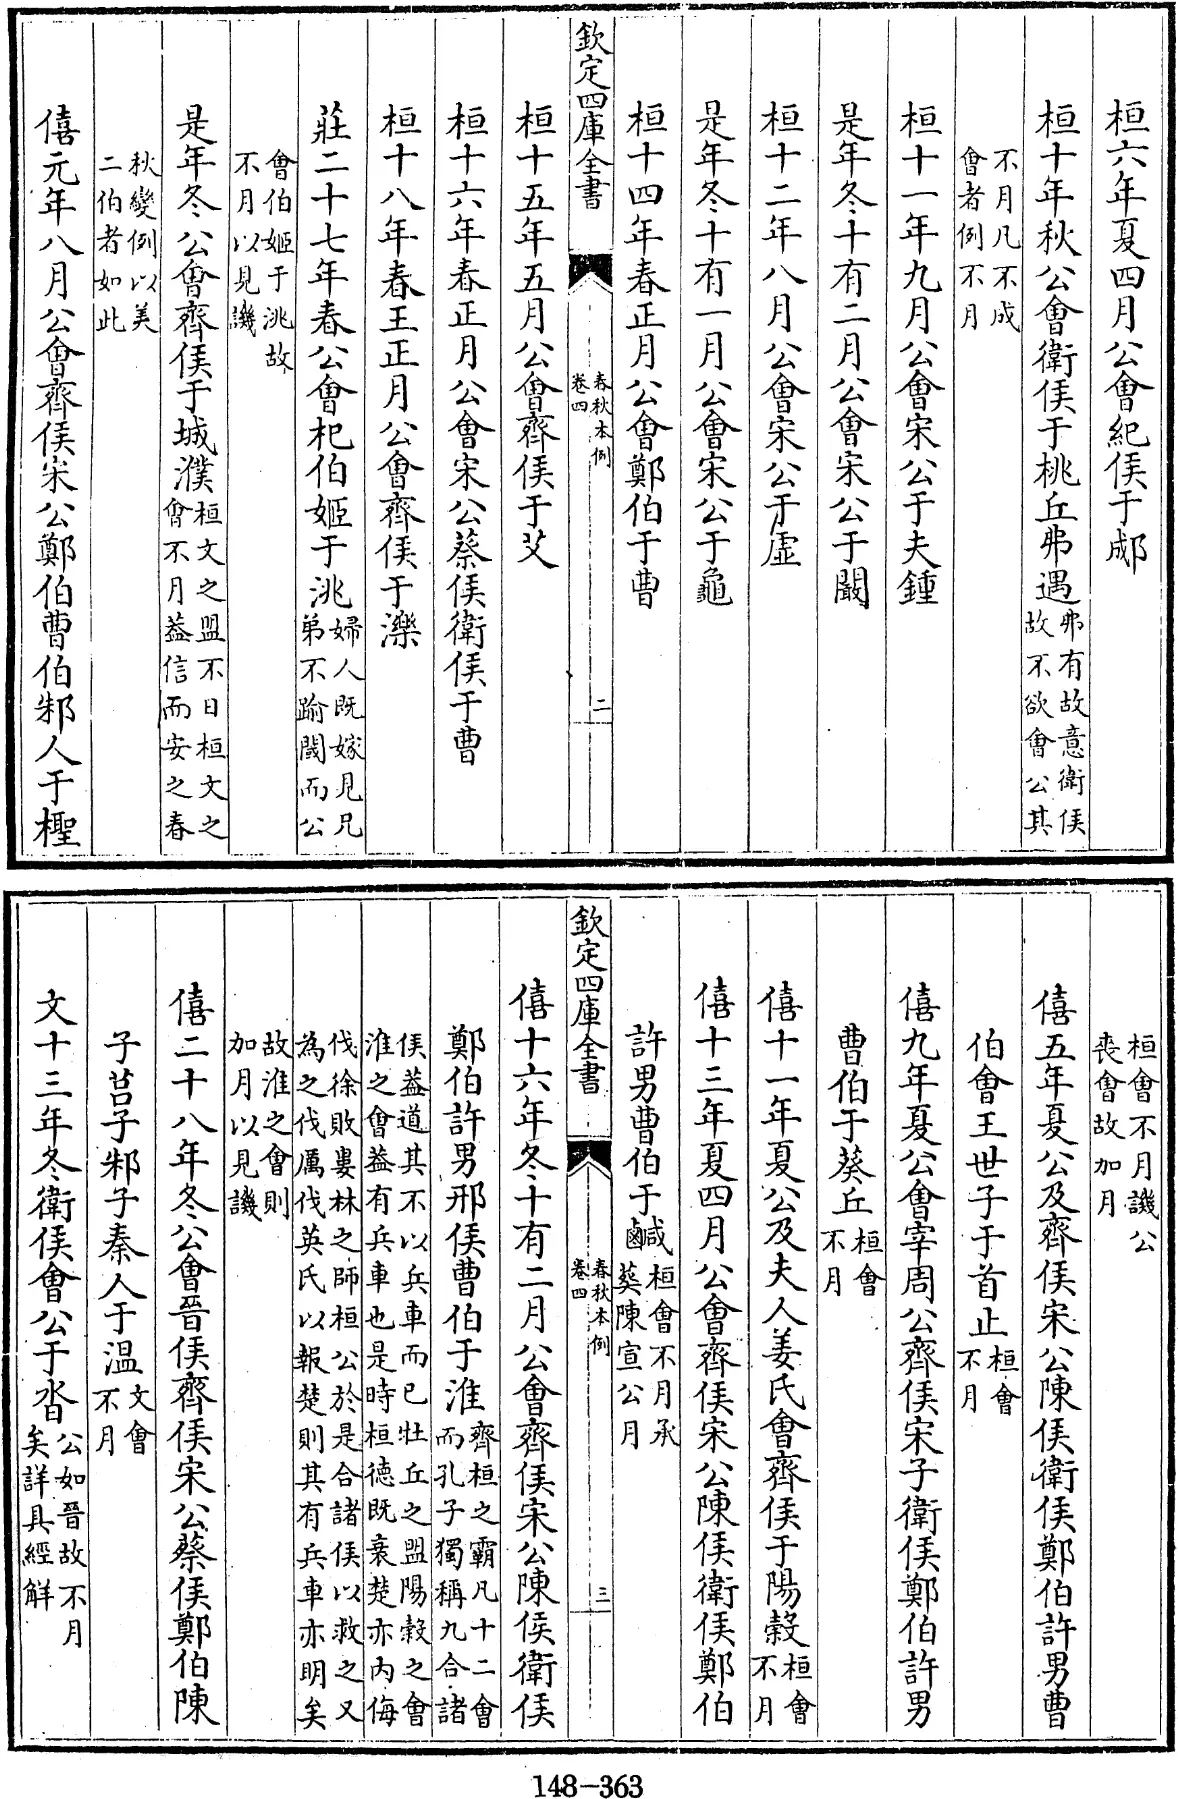 桓六年夏四月公會紀侯于郕
桓十年秋公會衛侯于桃丘弗遇弗有故意衛侯故不欲會公其
不月凡不成會者例不月
桓十一年九月公會宋公于夫鍾
是年冬十有二月公會宋公于闞
桓十二年八月公會宋公于虛
是年冬十有一月公會宋公于龜
桓十四年春正月公會鄭伯于曹
欽定四庫全書
春秋本例
卷四
二
桓十五年五月公會齊侯于艾
桓十六年春正月公會宋公蔡侯衛侯于曹
桓十八年春王正月公會齊侯于濼
莊二十七年春公會杞伯姬于洮婦人既嫁見兄弟不踰閾而公
會伯姬于洮故不月以見譏
是年冬公會齊侯于城濮桓文之盟不日桓文之會不月葢信而安之春
秋變例以美二伯者如此
僖元年八月公會齊侯宋公鄭伯曹伯邾人于檉
桓會不月譏公喪會故加月
僖五年夏公及齊侯宋公陳侯衛侯鄭伯許男曹
伯會王世子于首止桓會不月
僖九年夏公會宰周公齊侯宋子衛侯鄭伯許男
曹伯于葵丘桓會不月
僖十一年夏公及夫人姜氏會齊侯于陽穀桓會不月
僖十三年夏四月公會齊侯宋公陳侯衛侯鄭伯
許男曹伯于鹹桓會不月承葵陳宣公月
欽定四庫全書
春秋本例
卷四
三
僖十六年冬十有二月公會齊侯宋公陳侯衛侯
鄭伯許男邢侯曹伯于淮齊桓之霸凡十二會而孔子獨稱九合諸
侯葢道其不以兵車而已牡丘之盟陽穀之會淮之會葢有兵車也是時桓德既衰楚亦內侮
伐徐敗婁林之師桓公於是合諸侯以救之又為之伐厲伐英氏以報楚則其有兵車亦明矣
故淮之會則加月以見譏
僖二十八年冬公會晉侯齊侯宋公蔡侯鄭伯陳
子莒子邾子秦人于溫文會不月
文十三年冬衛侯會公于沓公如晉故不月矣詳具經解
148-363